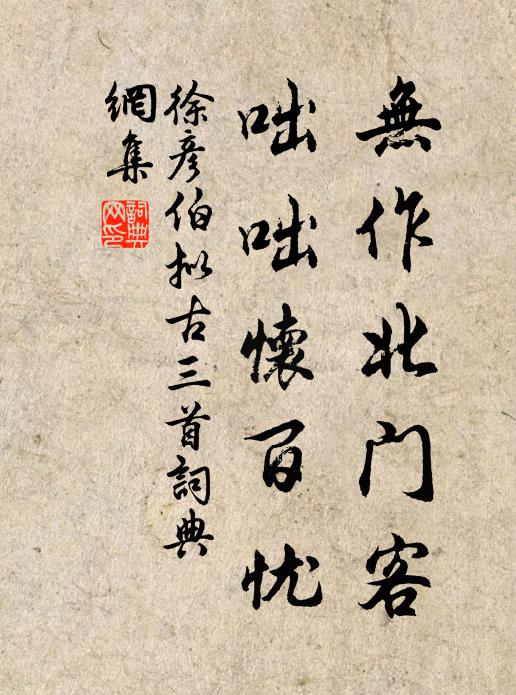 無作北門客
咄咄懷百忧
徐彥伯拟古三首詞典
網集
詞典
网印